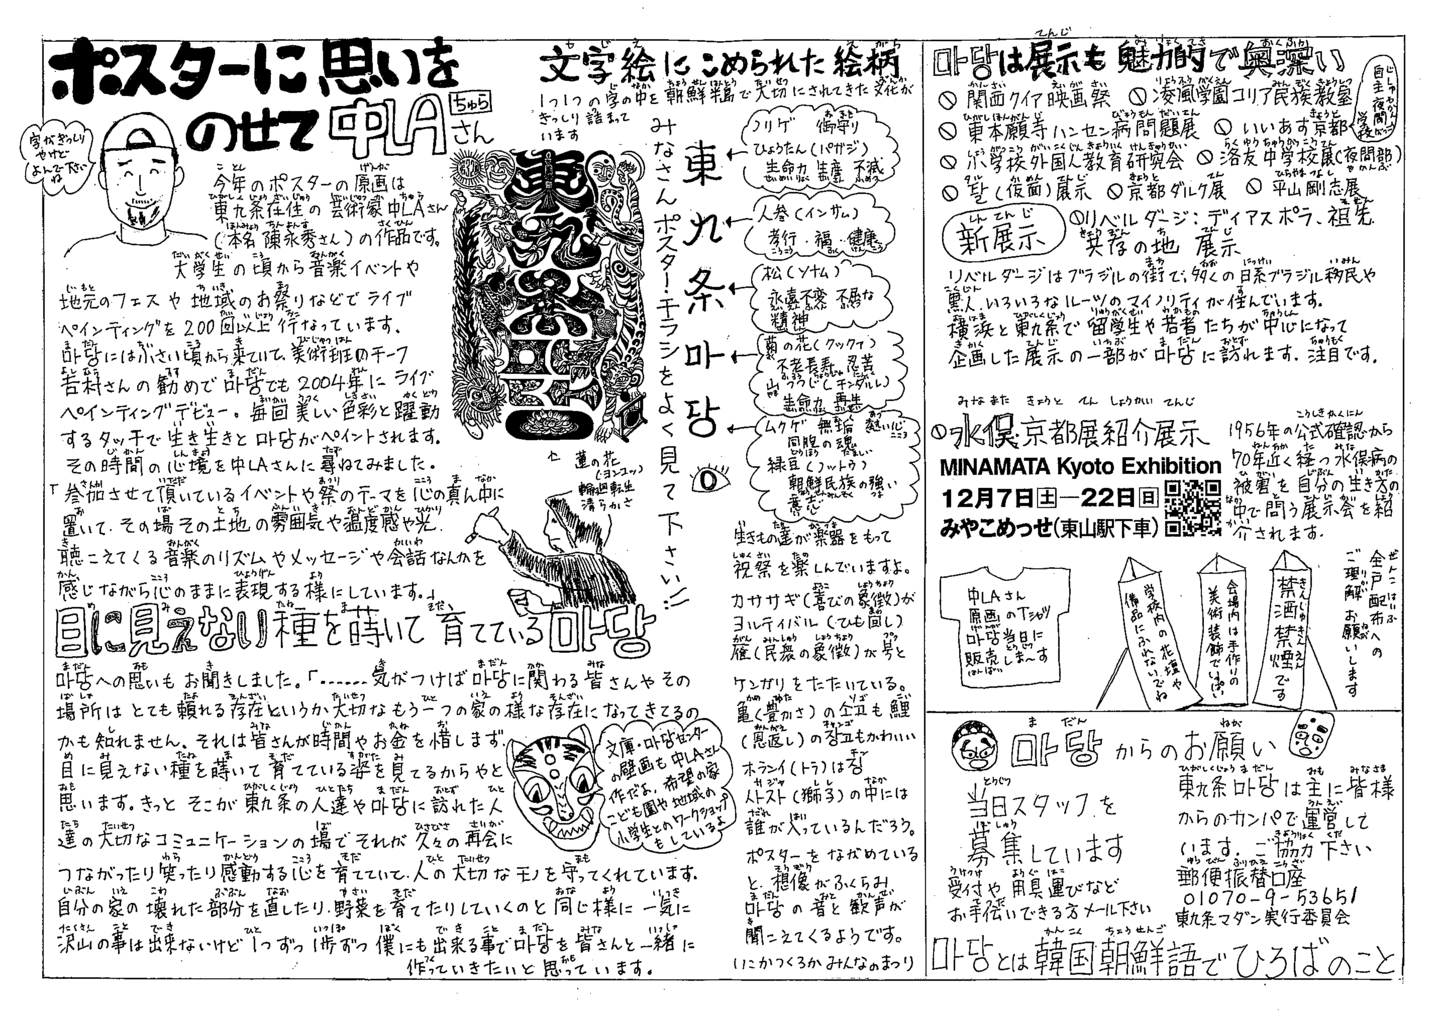 ポスターに思いを
のせて 中LAさん
ちゅら
字がぎっしり
やけど
よんで下さい
ね
今年のポスターの原画は
東九条在住の芸術家中LAさん
(本名 陳永秀さん)の作品です。
大学生の頃から音楽イベントや
地元のフェスや地域のお祭りなどでライブ
ペインティングを200回以上行なっています。
마당には小さい頃から来ていて、美術班のチーフ
若村さんの勧めで마당でも2004年にライブ
ペインティングデビュー。毎回美しい色彩と躍動
するタッチで生き生きと마당がペイントされます。
その時間の心境を中LAさんに尋ねてみました。
「参加させて頂いているイベントや祭のテーマを心の真ん中に
置いて、その場その土地の雰囲気や温度感や光、
聴こえてくる音楽のリズムやメッセージや会話なんかを
感じながら心のままに表現する様にしています。」
目に見えない種を蒔いて育てている마당
마당への思いもお聞きしました。「……気がつけば마당に関わる皆さんやその
場所はとても頼れる存在というか大切なもう一つの家の様な存在になってきてるの
かも知れません。それは皆さんが時間やお金を惜しまず、
目に見えない種を蒔いて育てている姿を見てるからやと
思います。きっとそこが東九条の人達や마당に訪れた人
達の大切なコミュニケーションの場でそれが久々の再会に
つながったり笑ったり感動する心を育てていて、人の大切なモノを守ってくれています。
自分の家の壊れた部分を直したり、野菜を育てたりしていくのと同じ様に一気に
沢山の事は出来ないけど1つずつ1歩ずつ僕にも出来る事で마당を皆さんと一緒に
作っていきたいと思っています。
文庫・마당センター
の壁画も中LAさん
作だよ。希望の家
こども園や地域の
小学生とのワークショップ
もしているよ
文字絵にこめられた絵柄
1つ1つの字の中を朝鮮半島で大切にされてきた文化が
ぎっしり詰まって
います
みなさんポスター!チラシをよく見て下さい!!
東九条마당
ノリゲ 御守り
ひょうたん(パガジ)
生命力 生産 不滅
人参(インサム)
孝行・福・健康
松(ソナム)
永遠不変 不屈な
精神
菊の花(クックァ)
不老長寿 忍苦
山つつじ(チンダルレ)
生命力 再生
ムクゲ 無窮 熱い心
同胞の魂
緑豆(ノットゥ)
朝鮮民族の強い
意志
蓮の花
(ヨンコッ)
輪廻転生
清らかさ
生きもの達が楽器をもって
祝祭を楽しんでいますよ。
カササギ(喜びの象徴)が
ヨルティバル(でも回し)
雁(民衆の象徴)が북と
ケンガリをたたいている。
亀(豊かさ)の소고も鯉
(恩返し)の장고もかわいい
ホランイ(トラ)は징
사자(獅子)の中には
誰が入っているんだろう。
ポスターをながめている
と、想像がふくらみ
마당の音と歓声が
聞こえてくるようです。
いにかつくるか みんなのまつり
마당は展示も魅力的で奥深い
関西クィア映画祭
凌風学園コリア民族教室
東本願寺ハンセン病問題展
いいあす京都
自主夜間学校
小学校外国人教育研究会
洛友中学校展(夜間部)
탈(仮面)展示
京都ダルク展
平山剛志展
新展示
リベルダージ:ディアスポラ、祖先
共存の地 展示
リベルダージはブラジルの街で、多くの日系ブラジル移民や
黒人、いろいろなルーツのマイノリティが住んでいます。
横浜と東九条で留学生や若者たちが中心になって
企画した展示の一部が마당に訪れます。注目です。
水俣京都展紹介展示
MINAMATA Kyoto Exhibition
12月7日土—22日日
みやこめっせ(東山駅下車)
1956年の公式確認から
70年近く経つ水俣病の
被害を自分の生き方の
中で問う展示会を紹
介されます。
中LAさん
原画のTシャツ
마당当日に
販売しま〜す
学校内の花壇や
備品にふれないでね
会場内は手作りの
美術装飾でいっぱい
禁酒禁煙です
全戸配布への
ご理解お願いします
마당からのお願い
当日スタッフを
募集しています
受付や用具運びなど
お手伝いできる方メール下さい
東九条마당は主に皆様
からのカンパで運営して
います。ご協力下さい
郵便振替口座
01070-9-53651
東九条マダン実行委員会
마당とは韓国朝鮮語でひろばのこと